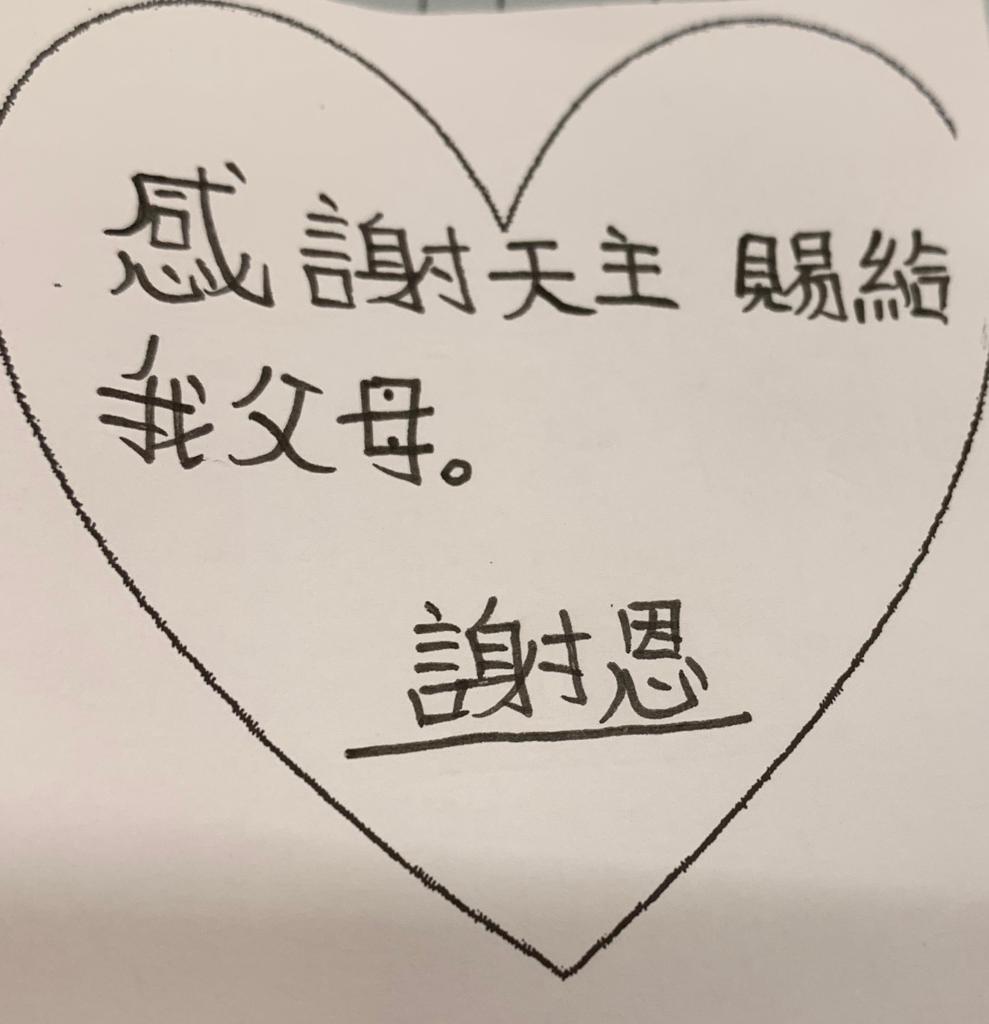 感謝天主賜給
我父母。
謝恩